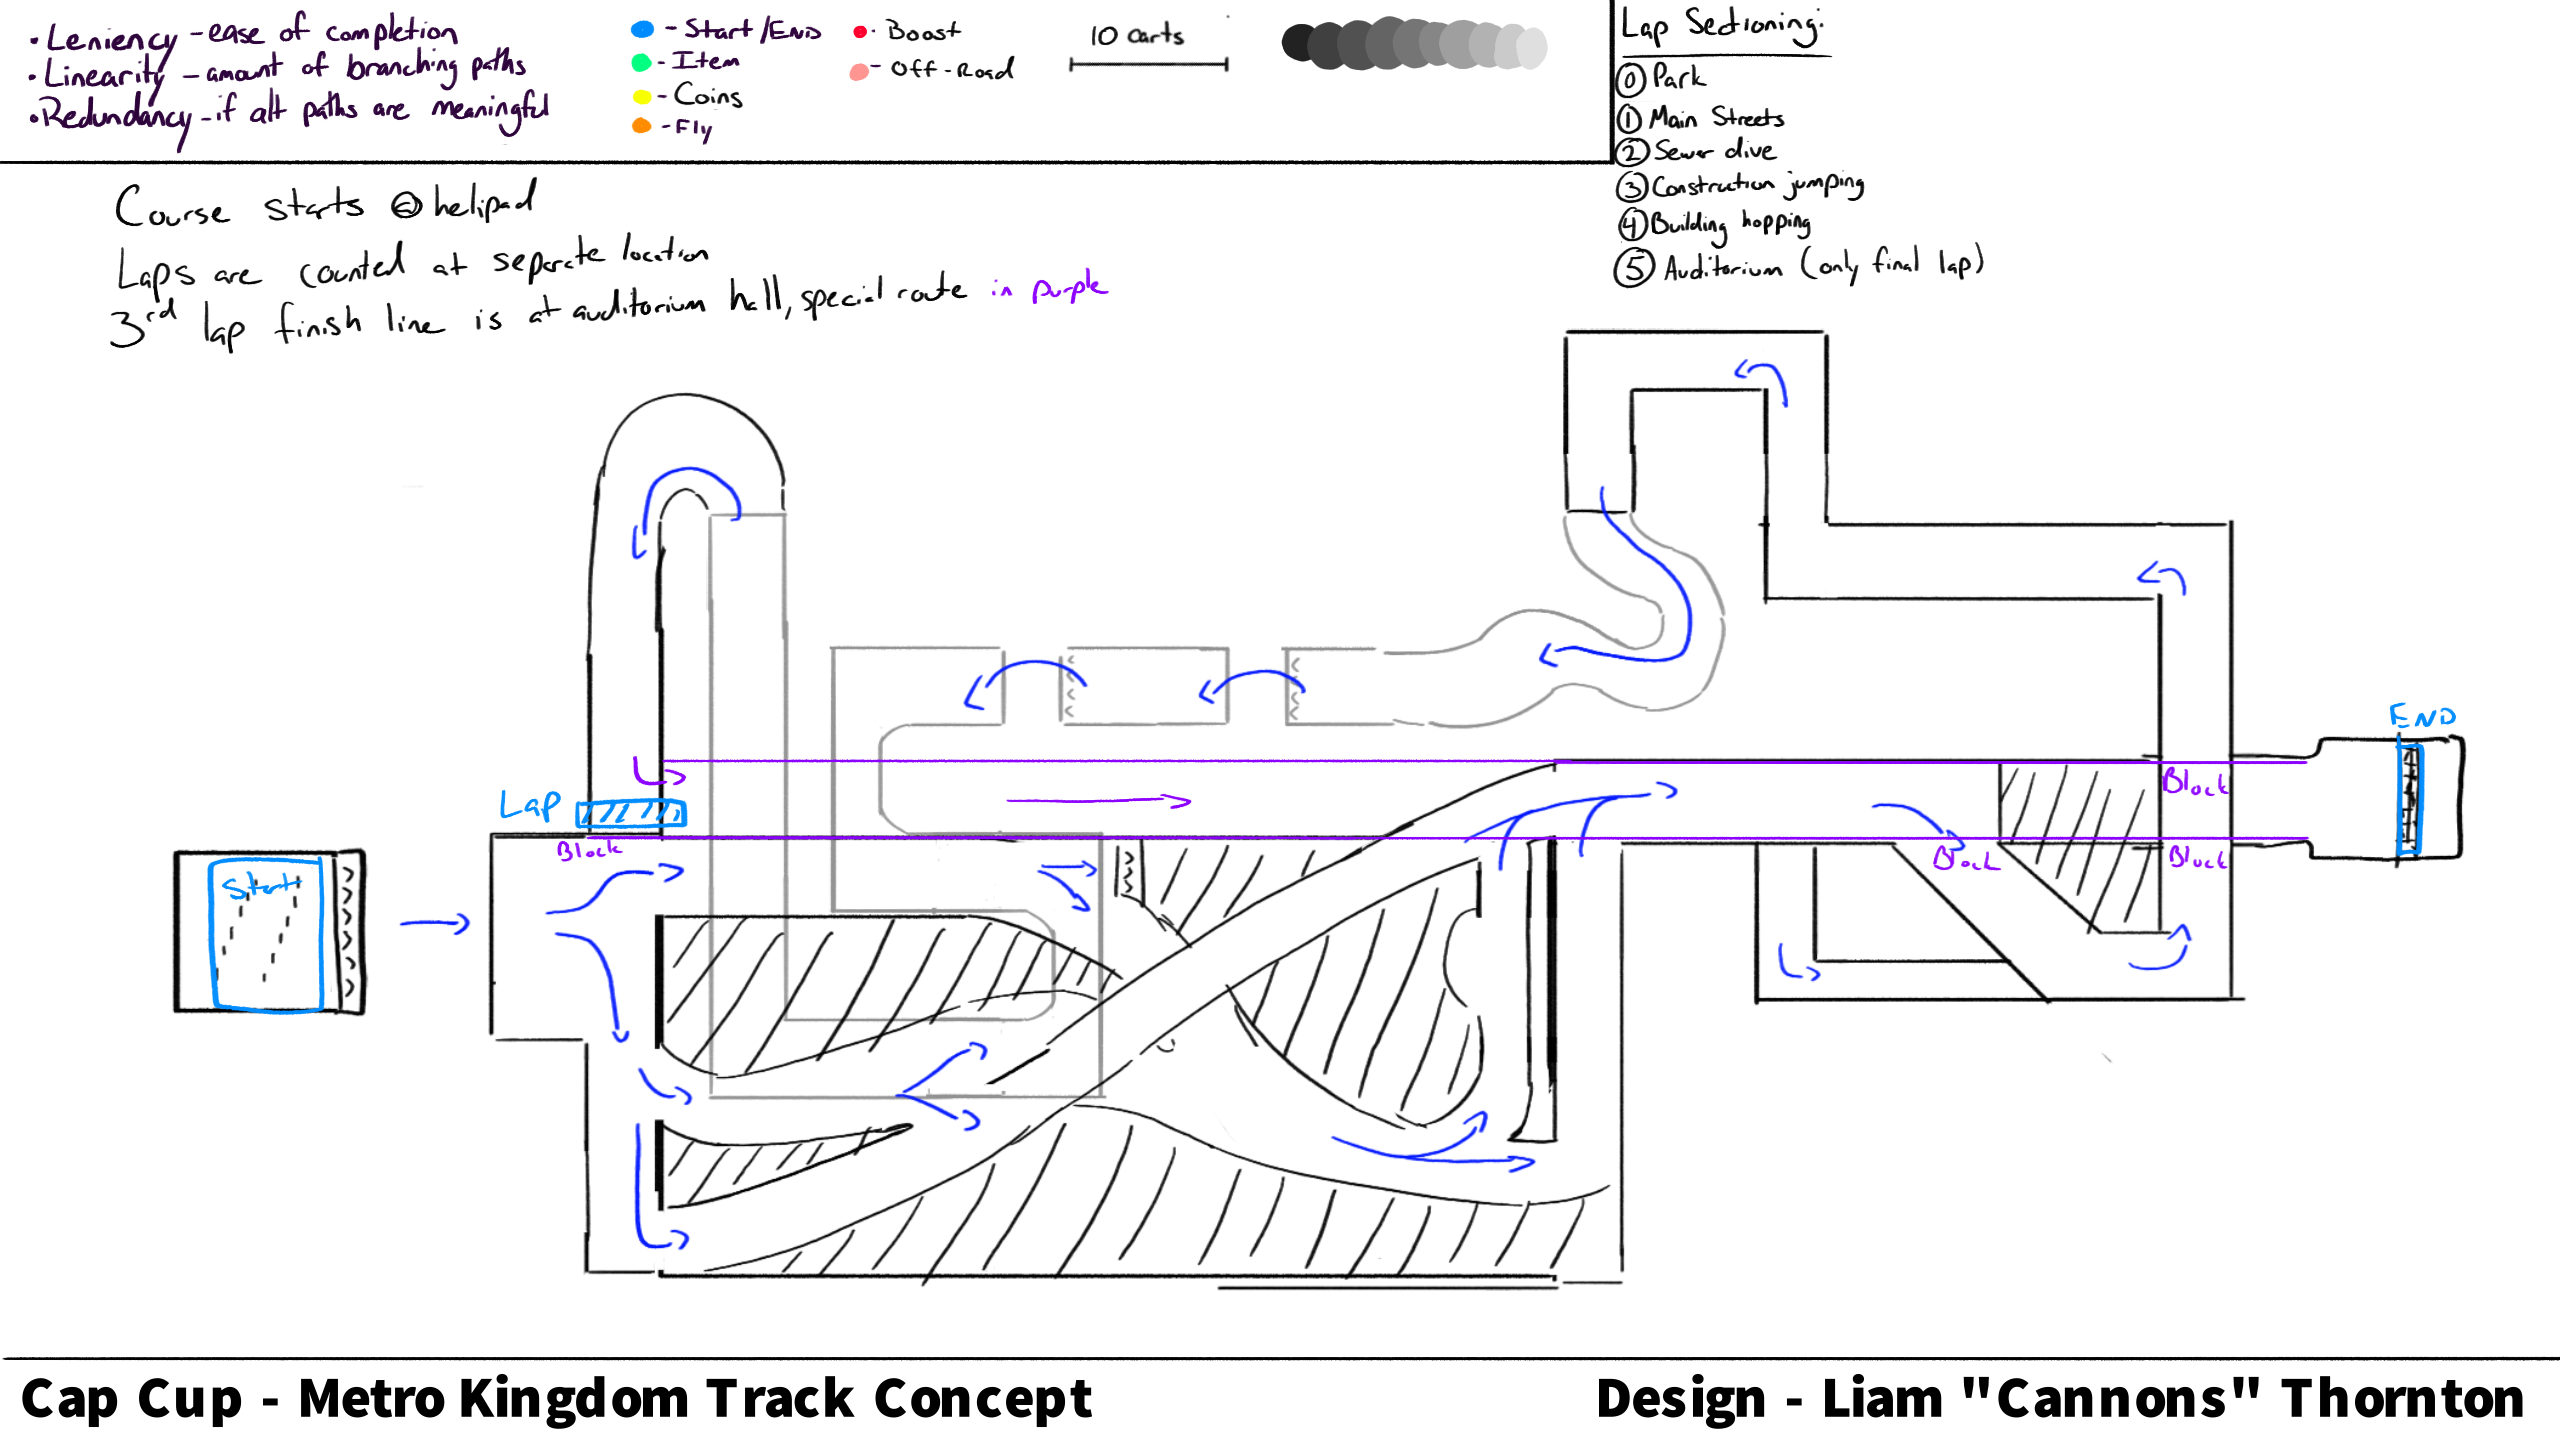 • Leniency - ease of completion
• Linearity - amount of branching paths
• Redundancy - if alt paths are meaningful
- Start/End
- Item
- Coins
- Fly
- Boost
- Off-Road
10 carts
Lap Sectioning:
0 Park
1 Main Streets
2 Sewer dive
3 Construction jumping
4 Building hopping
5 Auditorium (only final lap)
Course starts @ helipad
Laps are counted at separate location
3rd lap finish line is at auditorium hall, special route in purple
END
Block
Lap
Block
Block
Block
Start
Cap Cup - Metro Kingdom Track Concept
Design - Liam "Cannons" Thornton